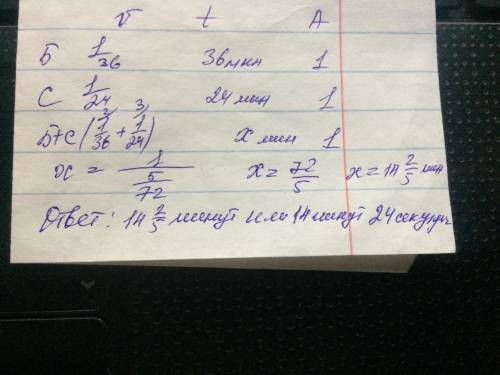 v t A
Б 1/36 36 мин 1
С 1/24 24 мин 1
Б+С (1/36 2 + 1/24 3) x мин 1
x = 1/(5/72) x = 72/5 x = 14 2/5 мин
Ответ: 14 2/5 минут или 14 минут 24 секунды